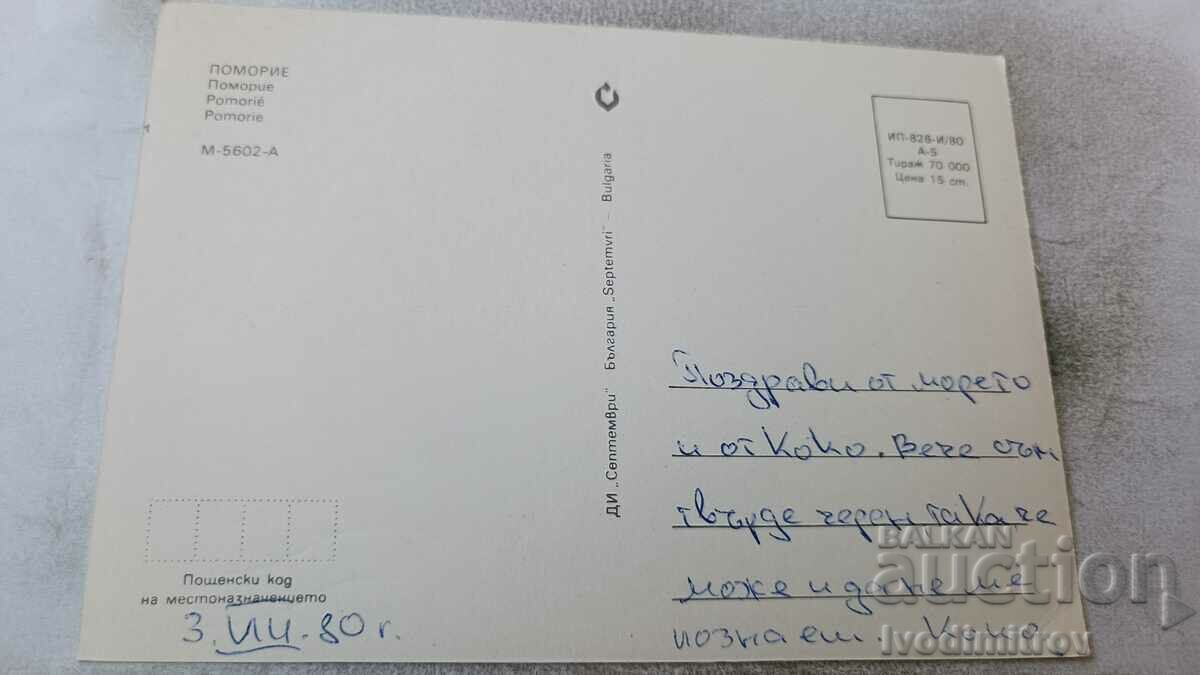 ПОМОРИЕ
Поморие
Pomorié
Pomorie
М-5602-А
ИП-826-И/80
А-5
Тираж 70 000
Цена 15 ст.
ДИ „Септември" България „Septemvri" – Bulgaria
Поздрави от морето
и от Коко. Вече съм
твърде черен така че
може и да не ме
познаеш. Коко
Пощенски код
на местоназначението
3. VIII. 80 г.
BALKAN
auction
Ivodimitrov